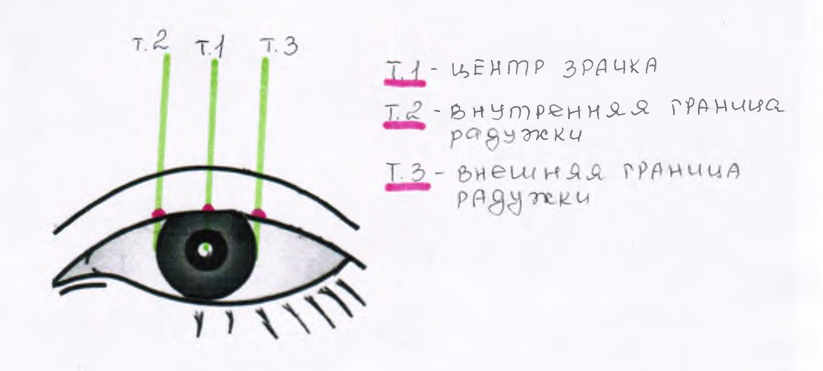 т.2 т.1 т.3
т.1 - центр зрачка
т.2 - внутренняя граница
радужки
т.3 - внешняя граница
радужки